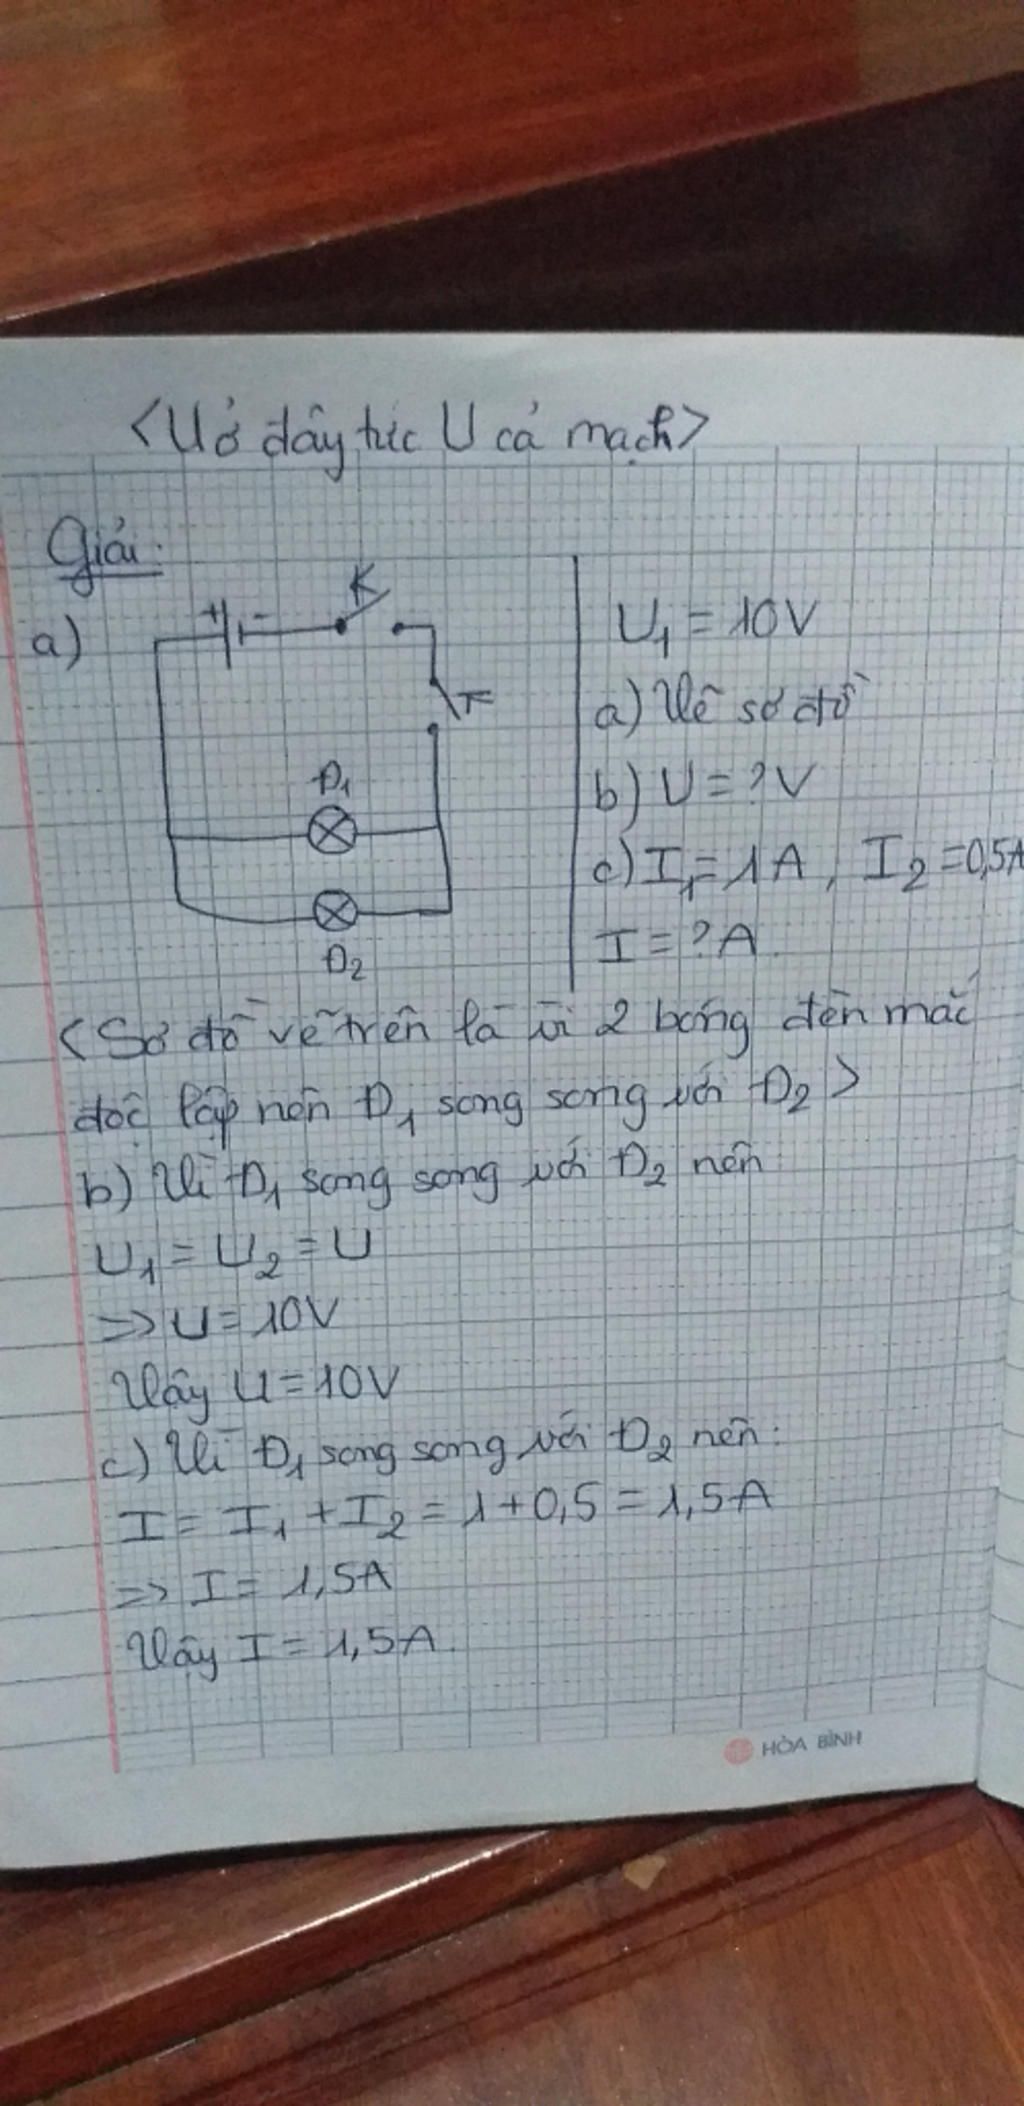 <U ở đây tức U cả mạch>
Giải:
a)
+ -
K
K
Đ1
Đ2
U1 = 10V
a) Vẽ sơ đồ
b) U = ? V
c) I1 = 1A, I2 = 0,5A
I = ? A.
<Sơ đồ vẽ trên là vì 2 bóng đèn mắc
độc lập nên Đ1 song song với Đ2>
b) Vì Đ1 song song với Đ2 nên
U1 = U2 = U
=> U = 10V
Vậy U = 10V
c) Vì Đ1 song song với Đ2 nên:
I = I1 + I2 = 1 + 0,5 = 1,5A
=> I = 1,5A
Vậy I = 1,5A.
HÒA BÌNH